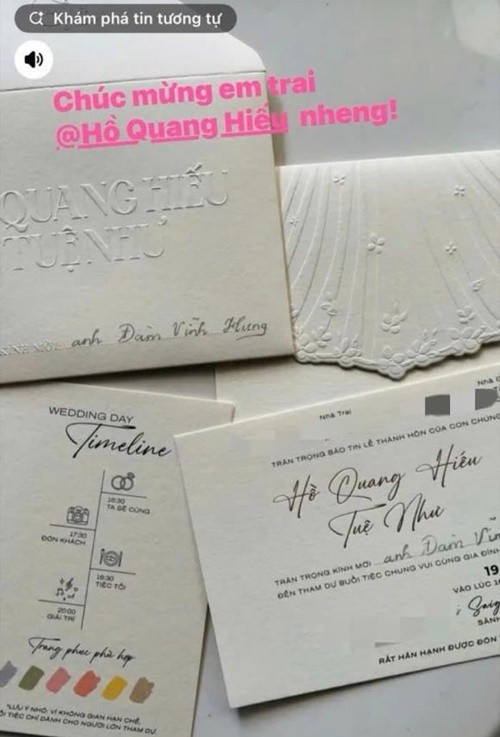 Khám phá tin tương tự
Chúc mừng em trai
@Hồ Quang Hiếu nheng!
QUANG HIẾU
TUỆ NHƯ
KÍNH MỜI: anh Đàm Vĩnh Hưng
WEDDING DAY
Timeline
TA SẼ CÙNG
17:30
ĐÓN KHÁCH
TIỆC TỐI
20:00
GIẢI TRÍ
Trang phục phù hợp
*LƯU Ý NHỎ: VÌ KHÔNG GIAN HẠN CHẾ,
TIỆC CHỈ DÀNH CHO NGƯỜI LỚN THAM DỰ
Nhà Trai
Nhà
TRÂN TRỌNG BÁO TIN LỄ THÀNH HÔN CỦA CON CHÚNG
Hồ Quang Hiếu
Tuệ Như
TRÂN TRỌNG KÍNH MỜI anh Đàm Vĩn
ĐẾN THAM DỰ BUỔI TIỆC CHUNG VUI CÙNG GIA ĐÌNH
19
VÀO LÚC
SẢNH
RẤT HÂN HẠNH ĐƯỢC ĐÓN